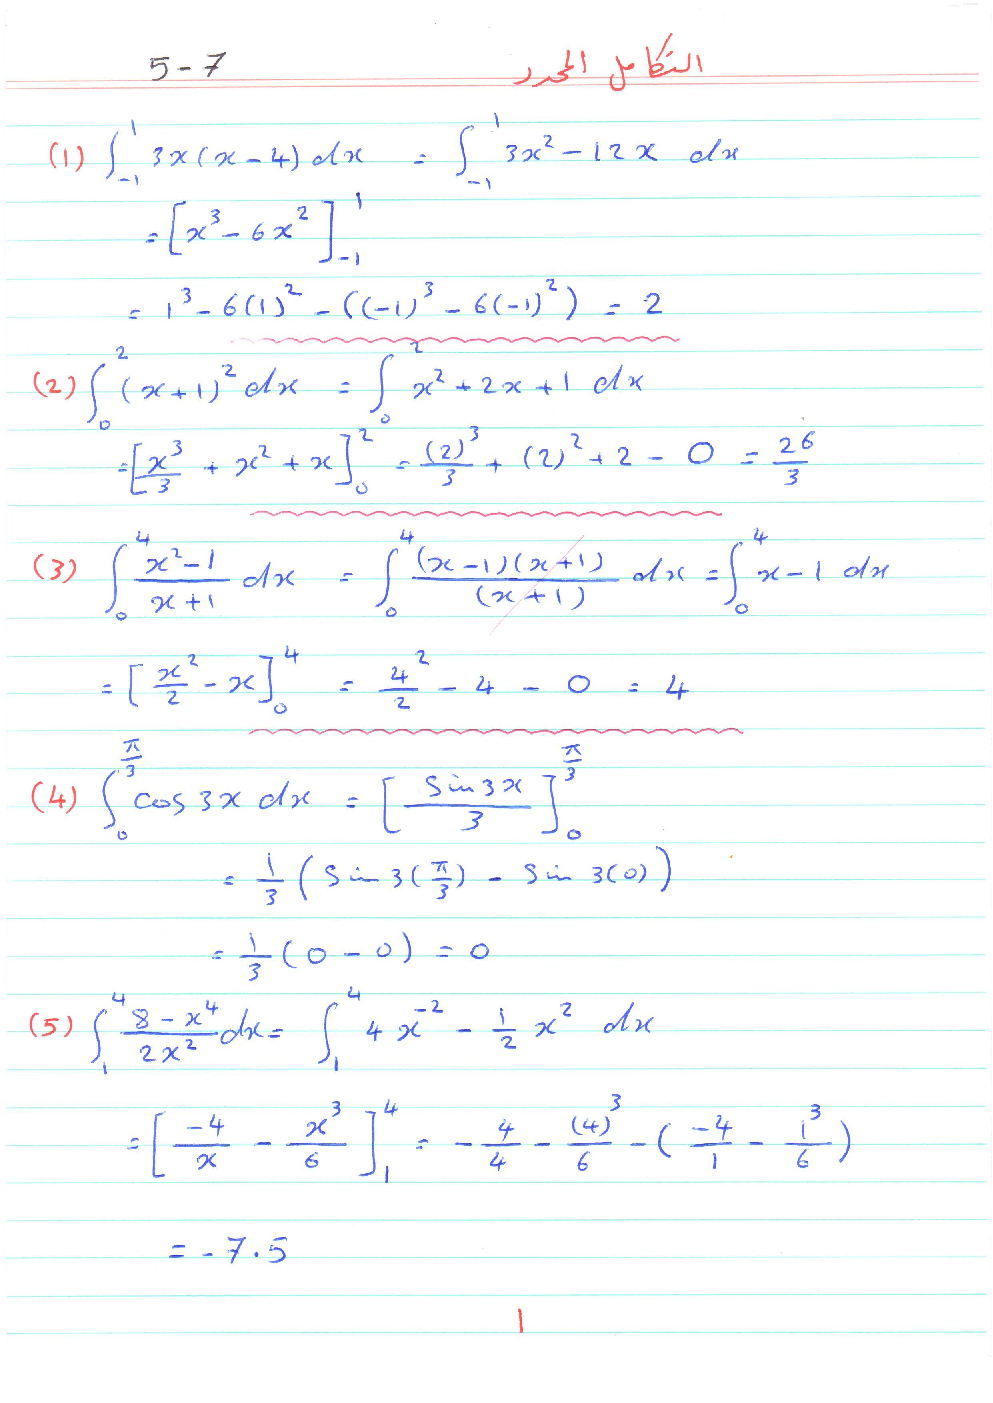 5-7 التكامل المحدد
(1) ∫₋₁¹ 3x(x-4) dx = ∫₋₁¹ 3x²-12x dx
= [x³-6x²]₋₁¹
= 1³-6(1)² - ((-1)³-6(-1)²) = 2
(2) ∫₀² (x+1)² dx = ∫₀² x²+2x+1 dx
= [x³/3 + x² + x]₀² = (2)³/3 + (2)² + 2 - 0 = 26/3
(3) ∫₀⁴ (x²-1)/(x+1) dx = ∫₀⁴ (x-1)(x+1)/(x+1) dx = ∫₀⁴ x-1 dx
= [x²/2 - x]₀⁴ = 4²/2 - 4 - 0 = 4
(4) ∫₀^(π/3) cos 3x dx = [sin 3x/3]₀^(π/3)
= 1/3 (Sin 3(π/3) - Sin 3(0))
= 1/3 (0-0) = 0
(5) ∫₁⁴ (8-x⁴)/(2x²) dx = ∫₁⁴ 4x⁻² - 1/2 x² dx
= [-4/x - x³/6]₁⁴ = -4/4 - (4)³/6 - (-4/1 - 1³/6)
= -7.5
1